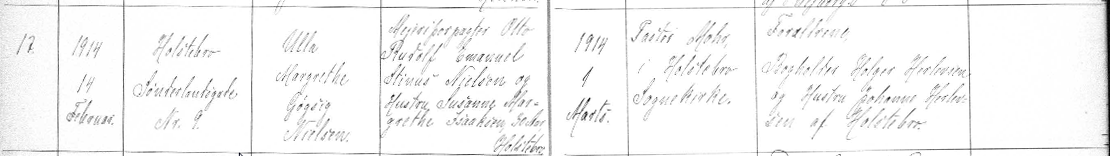 17.
1914
14
Februar.
Holstebro
Sønderlandsgade
Nr. 9.
Ulla
Margrethe
Gøgsig
Nielsen.
Mejeribestyrer Otto
Rudolf Emanuel
Stinus Nielsen og
Hustru Susanne Mar-
grethe Isaksen,
Holstebro.
1914
9
Marts.
Pastor Mohr,
i Holstebro
Sognekirke.
Forældrene,
Bogholder Holger Herlevsen
og Hustru Johanne Herlev-
sen af Holstebro.